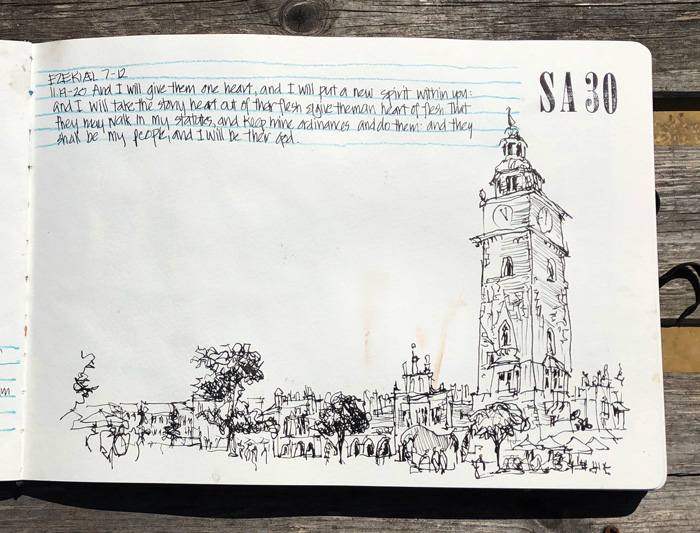 EZEKIAL 7-12
11.19-20 And I will give them one heart, and I will put a new spirit within you:
and I will take the stony heart out of their flesh & give them an heart of flesh That
they may walk in my statutes, and keep mine ordinances and do them: and they
shall be my people, and I will be their God.
SA 30